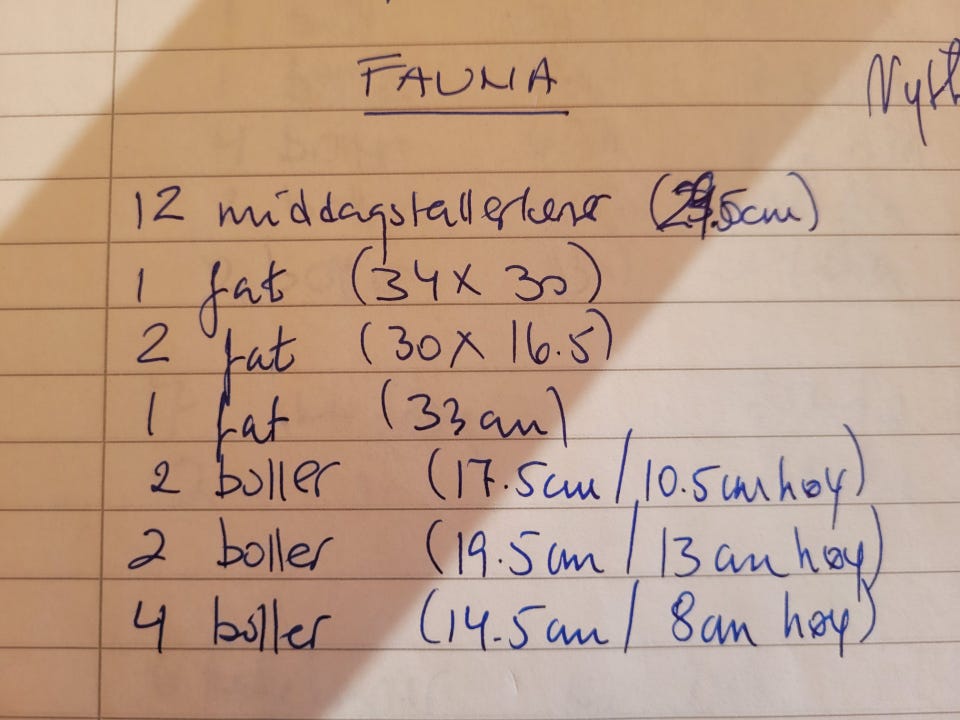 FAUNA
12 middagstallerkener (29.5cm)
1 fat (34 X 30)
2 fat (30 X 16.5)
1 fat (33 cm)
2 boller (17.5cm / 10.5cm høy)
2 boller (19.5cm / 13 cm høy)
4 boller (14.5cm / 8cm høy)